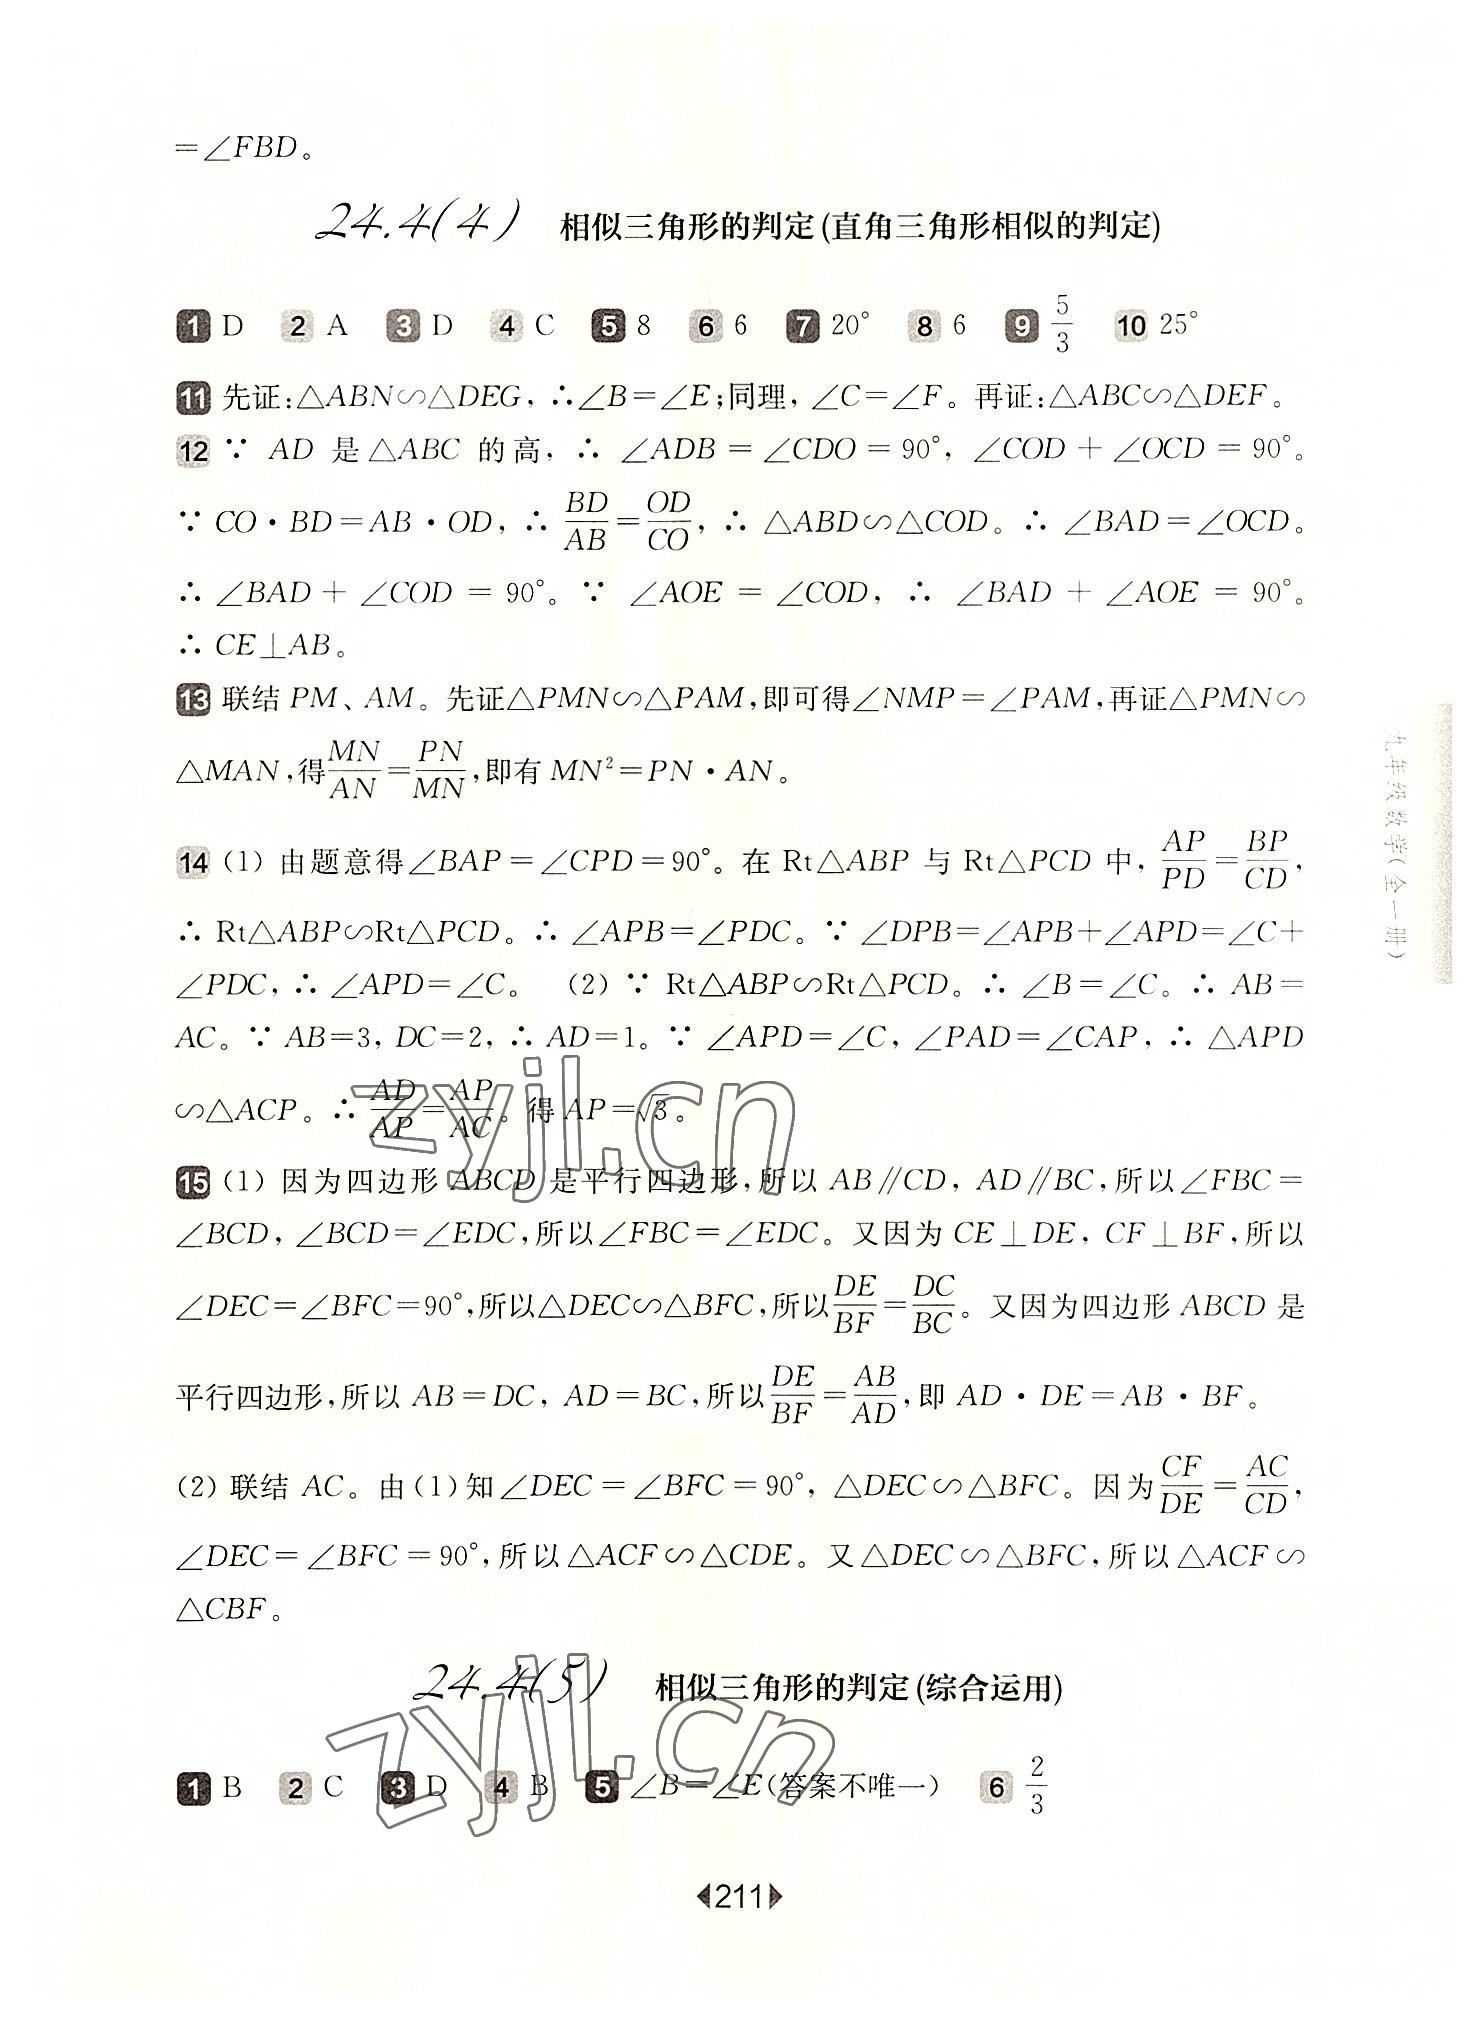 =∠FBD。
24.4(4) 相似三角形的判定(直角三角形相似的判定)
1 D 2 A 3 D 4 C 5 8 6 6 7 20° 8 6 9 5/3 10 25°
11 先证:△ABN∽△DEG, ∴∠B=∠E;同理, ∠C=∠F。再证:△ABC∽△DEF。
12 ∵ AD 是△ABC 的高, ∴ ∠ADB=∠CDO=90°, ∠COD+∠OCD=90°。
∵ CO·BD=AB·OD, ∴ BD/AB=OD/CO, ∴ △ABD∽△COD。∴ ∠BAD=∠OCD。
∴ ∠BAD+∠COD=90°。∵ ∠AOE=∠COD, ∴ ∠BAD+∠AOE=90°。
∴ CE⊥AB。
13 联结 PM、AM。先证△PMN∽△PAM,即可得∠NMP=∠PAM,再证△PMN∽
△MAN,得MN/AN=PN/MN,即有 MN²=PN·AN。
14 (1) 由题意得∠BAP=∠CPD=90°。在 Rt△ABP 与 Rt△PCD 中, AP/PD=BP/CD,
∴ Rt△ABP∽Rt△PCD。∴ ∠APB=∠PDC。∵ ∠DPB=∠APB+∠APD=∠C+
∠PDC, ∴ ∠APD=∠C。 (2) ∵ Rt△ABP∽Rt△PCD。∴ ∠B=∠C。∴ AB=
AC。∵ AB=3, DC=2, ∴ AD=1。∵ ∠APD=∠C, ∠PAD=∠CAP, ∴ △APD
∽△ACP。∴ AD/AP=AP/AC。得 AP=√3。
15 (1) 因为四边形 ABCD 是平行四边形,所以 AB∥CD, AD∥BC,所以∠FBC=
∠BCD, ∠BCD=∠EDC,所以∠FBC=∠EDC。又因为 CE⊥DE, CF⊥BF,所以
∠DEC=∠BFC=90°,所以△DEC∽△BFC,所以DE/BF=DC/BC。又因为四边形 ABCD 是
平行四边形,所以 AB=DC, AD=BC,所以DE/BF=AB/AD,即 AD·DE=AB·BF。
(2) 联结 AC。由(1)知∠DEC=∠BFC=90°, △DEC∽△BFC。因为CF/DE=AC/CD,
∠DEC=∠BFC=90°,所以△ACF∽△CDE。又△DEC∽△BFC,所以△ACF∽
△CBF。
24.4(5) 相似三角形的判定(综合运用)
1 B 2 C 3 D 4 B 5 ∠B=∠E(答案不唯一) 6 2/3
211
九年级数学(全一册)
zyjl.cn
zyjl.cn